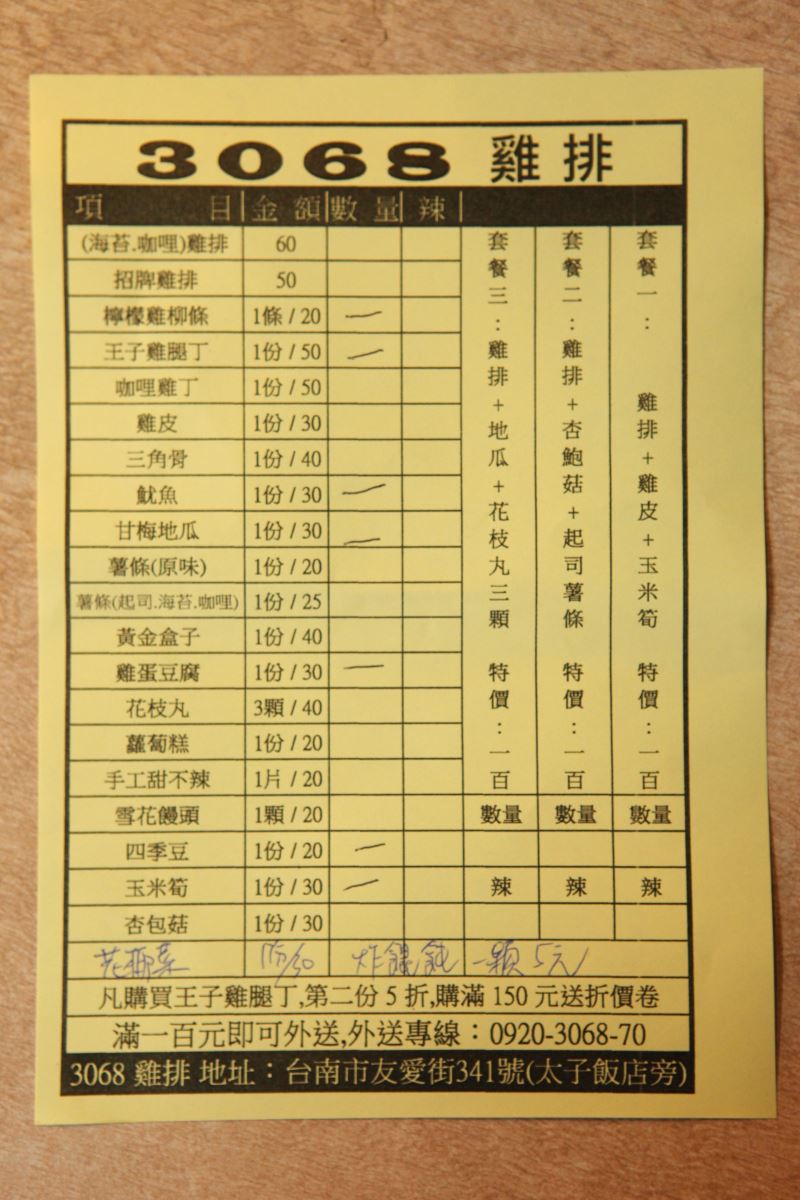 3068 雞排
項目 金額 數量 辣
(海苔.咖哩)雞排 60
招牌雞排 50
檸檬雞柳條 1條 / 20 一
王子雞腿丁 1份 / 50 一
咖哩雞丁 1份 / 50
雞皮 1份 / 30
三角骨 1份 / 40
魷魚 1份 / 30 一
甘梅地瓜 1份 / 30 一
薯條(原味) 1份 / 20
薯條(起司.海苔.咖哩) 1份 / 25
黃金盒子 1份 / 40
雞蛋豆腐 1份 / 30 一
花枝丸 3顆 / 40
蘿蔔糕 1份 / 20
手工甜不辣 1片 / 20
雪花饅頭 1顆 / 20
四季豆 1份 / 20 一
玉米筍 1份 / 30 一
杏包菇 1份 / 30
套餐一: 雞排+雞皮+玉米筍 特價:一百
套餐二:雞排+杏鮑菇+起司薯條 特價:一百
套餐三:雞排+地瓜+花枝丸三顆 特價:一百
數量 數量 數量
辣 辣 辣
花椰菜 1份/30 炸餛飩 一顆5元
凡購買王子雞腿丁,第二份 5 折,購滿 150 元送折價卷
滿一百元即可外送,外送專線：0920-3068-70
3068 雞排 地址：台南市友愛街341號(太子飯店旁)